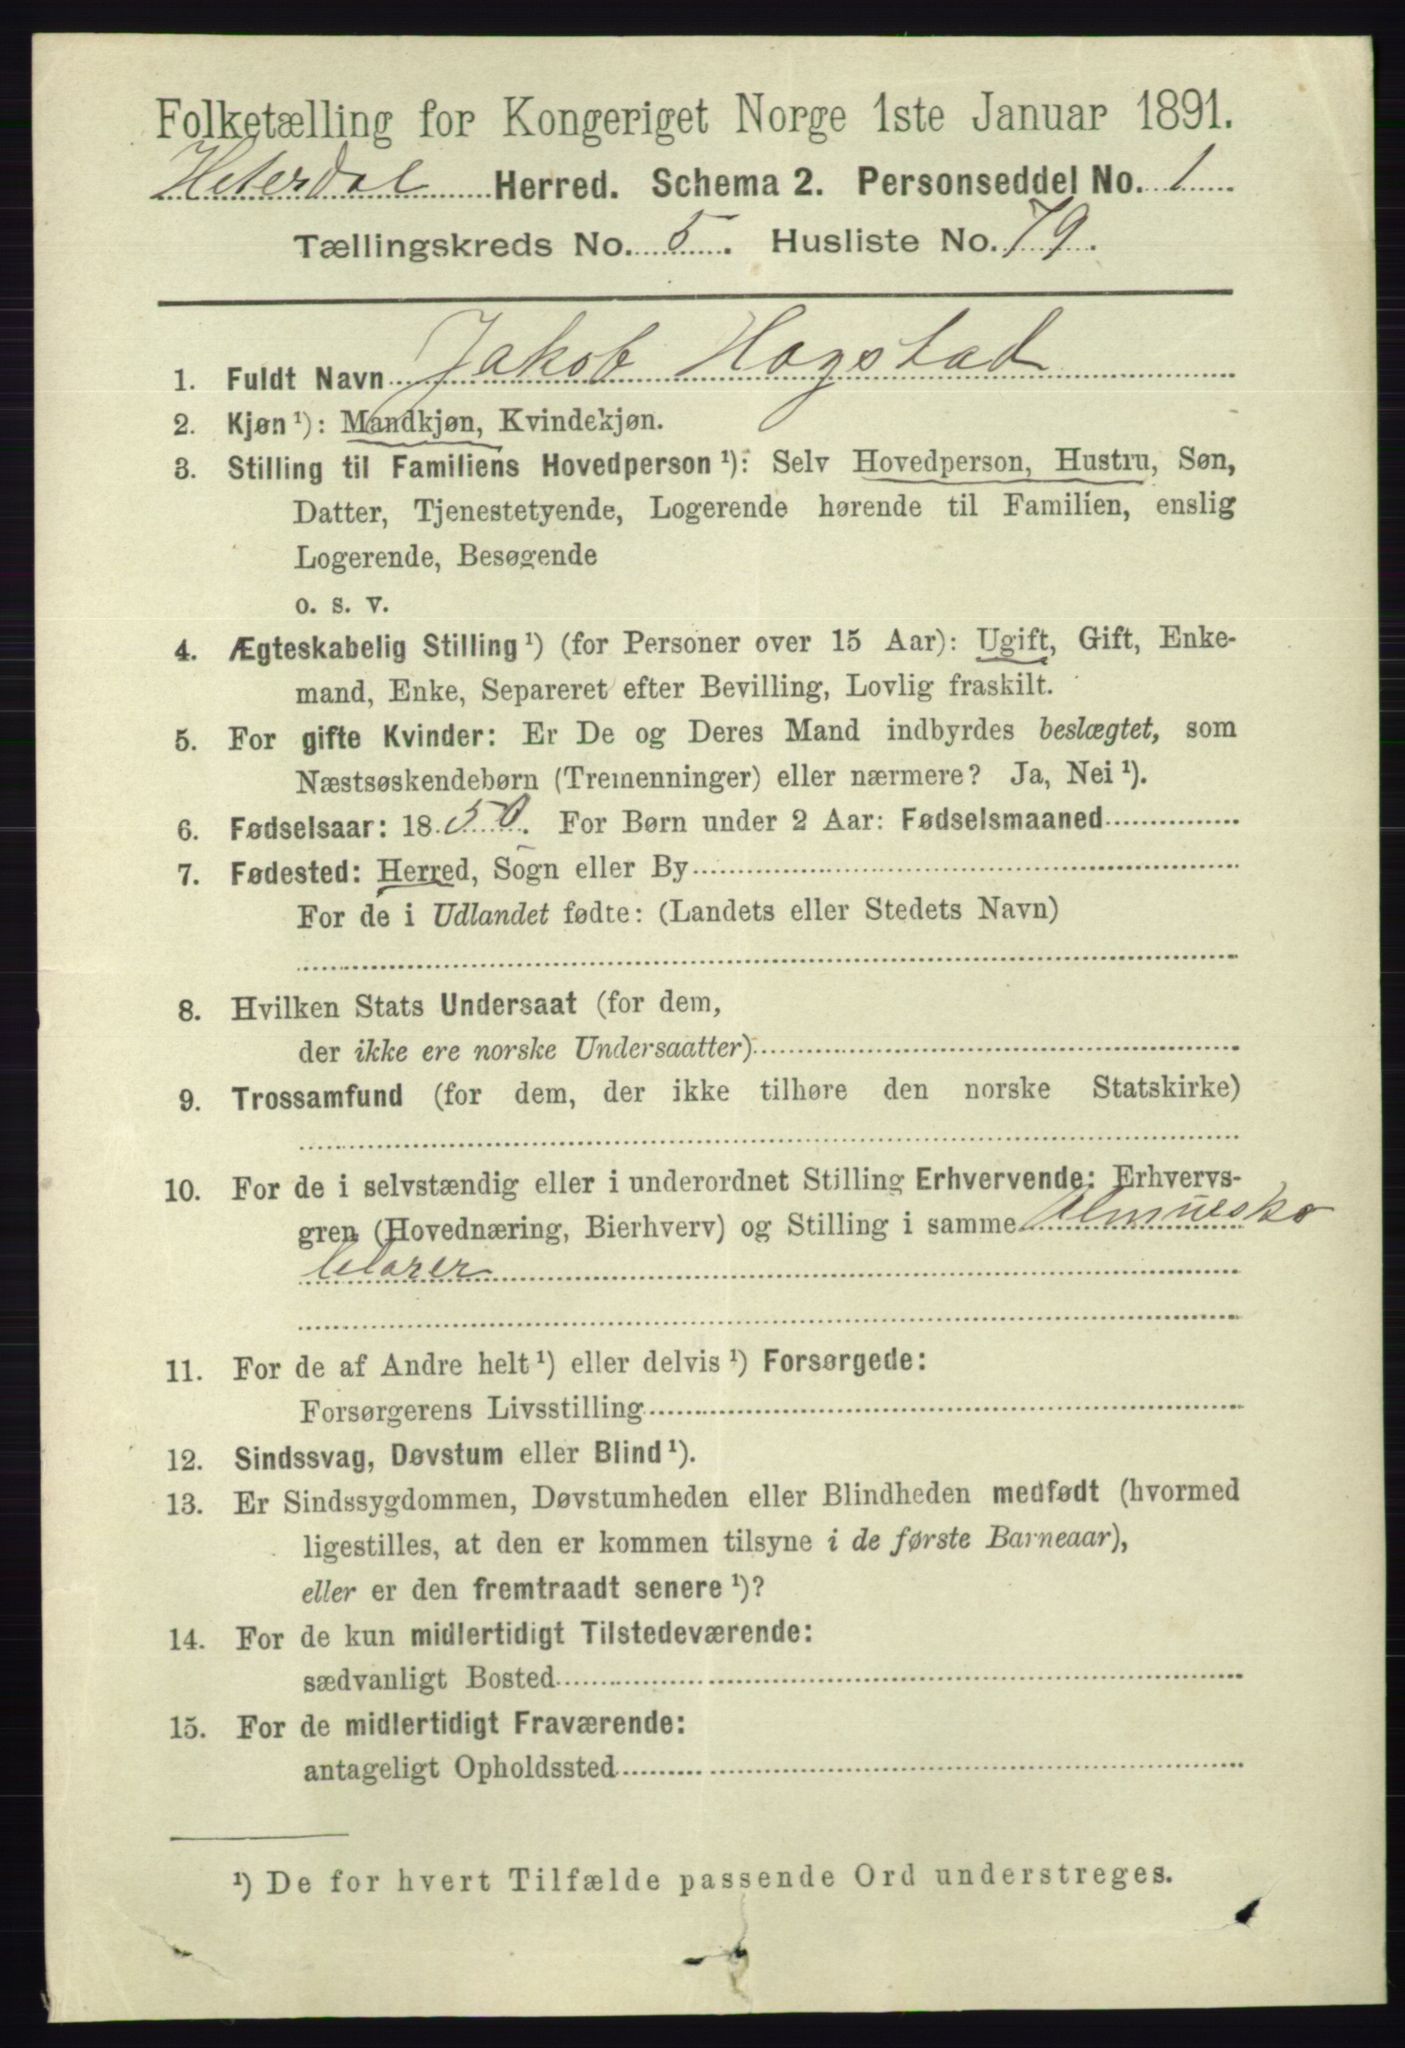 Folketælling for Kongeriget Norge 1ste Januar 1891.
Heterdal Herred. Schema 2. Personseddel No. 1
Tællingskreds No. 5. Husliste No. 79.
1. Fuldt Navn Jakob Hogstad
2. Kjøn ¹): Mandkjøn, Kvindekjøn.
3. Stilling til Familiens Hovedperson ¹): Selv Hovedperson, Hustru, Søn,
Datter, Tjenestetyende, Logerende hørende til Familien, enslig
Logerende, Besøgende
o. s. v.
4. Ægteskabelig Stilling ¹) (for Personer over 15 Aar): Ugift, Gift, Enke-
mand, Enke, Separeret efter Bevilling, Lovlig fraskilt.
5. For gifte Kvinder: Er De og Deres Mand indbyrdes beslægtet, som
Næstsøskendebørn (Tremenninger) eller nærmere? Ja, Nei ¹).
6. Fødselsaar: 1850. For Børn under 2 Aar: Fødselsmaaned
7. Fødested: Herred, Sogn eller By
For de i Udlandet fødte: (Landets eller Stedets Navn)
8. Hvilken Stats Undersaat (for dem,
der ikke ere norske Undersaatter)
9. Trossamfund (for dem, der ikke tilhøre den norske Statskirke)
10. For de i selvstændig eller i underordnet Stilling Erhvervende: Erhvervs-
gren (Hovednæring, Bierhverv) og Stilling i samme Almuesko
lelærer
11. For de af Andre helt ¹) eller delvis ¹) Forsørgede:
Forsørgerens Livsstilling
12. Sindssvag, Døvstum eller Blind ¹).
13. Er Sindssygdommen, Døvstumheden eller Blindheden medfødt (hvormed
ligestilles, at den er kommen tilsyne i de første Barneaar),
eller er den fremtraadt senere ¹)?
14. For de kun midlertidigt Tilstedeværende:
sædvanligt Bosted
15. For de midlertidigt Fraværende:
antageligt Opholdssted
¹) De for hvert Tilfælde passende Ord understreges.